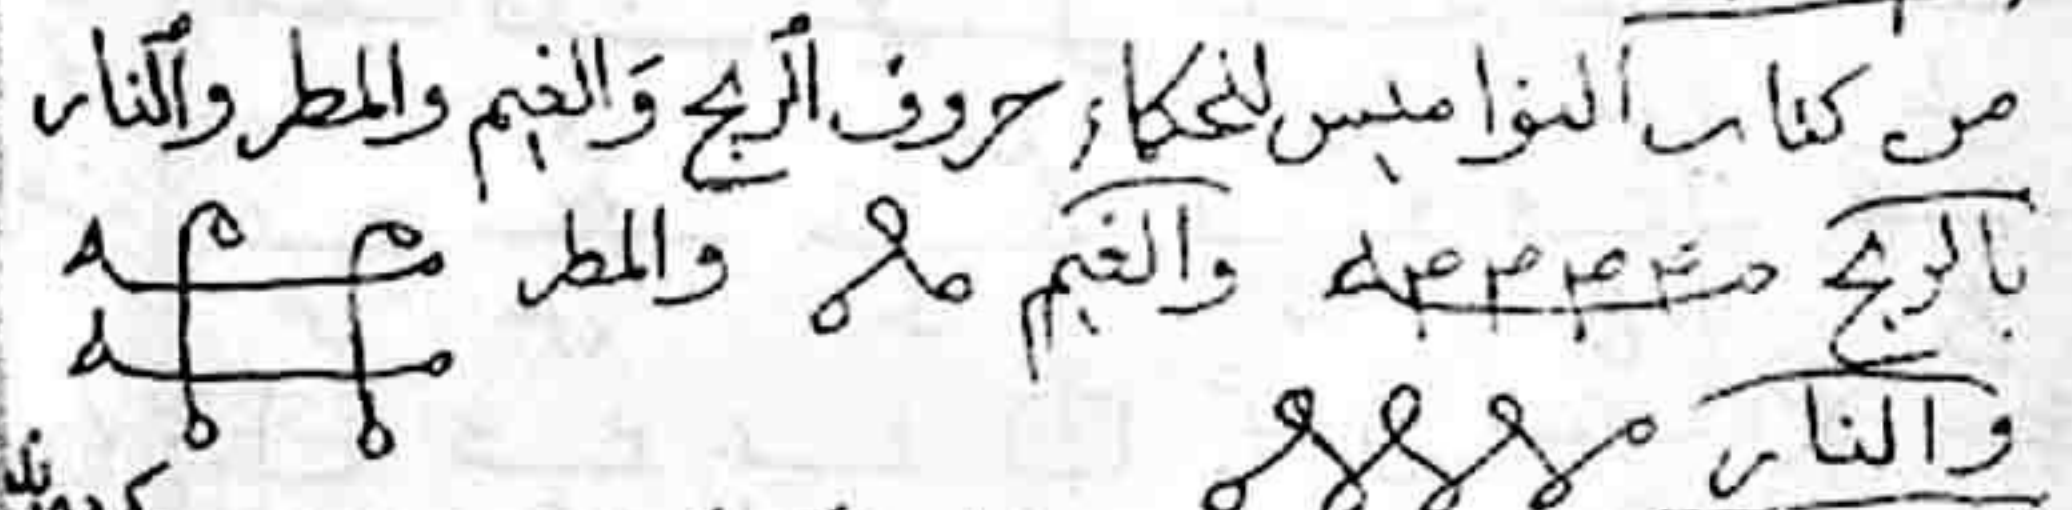 من كتاب النواميس للحكماء حروف الريح والغيم والمطر والنار
بالريح والغيم والمطر
والنار